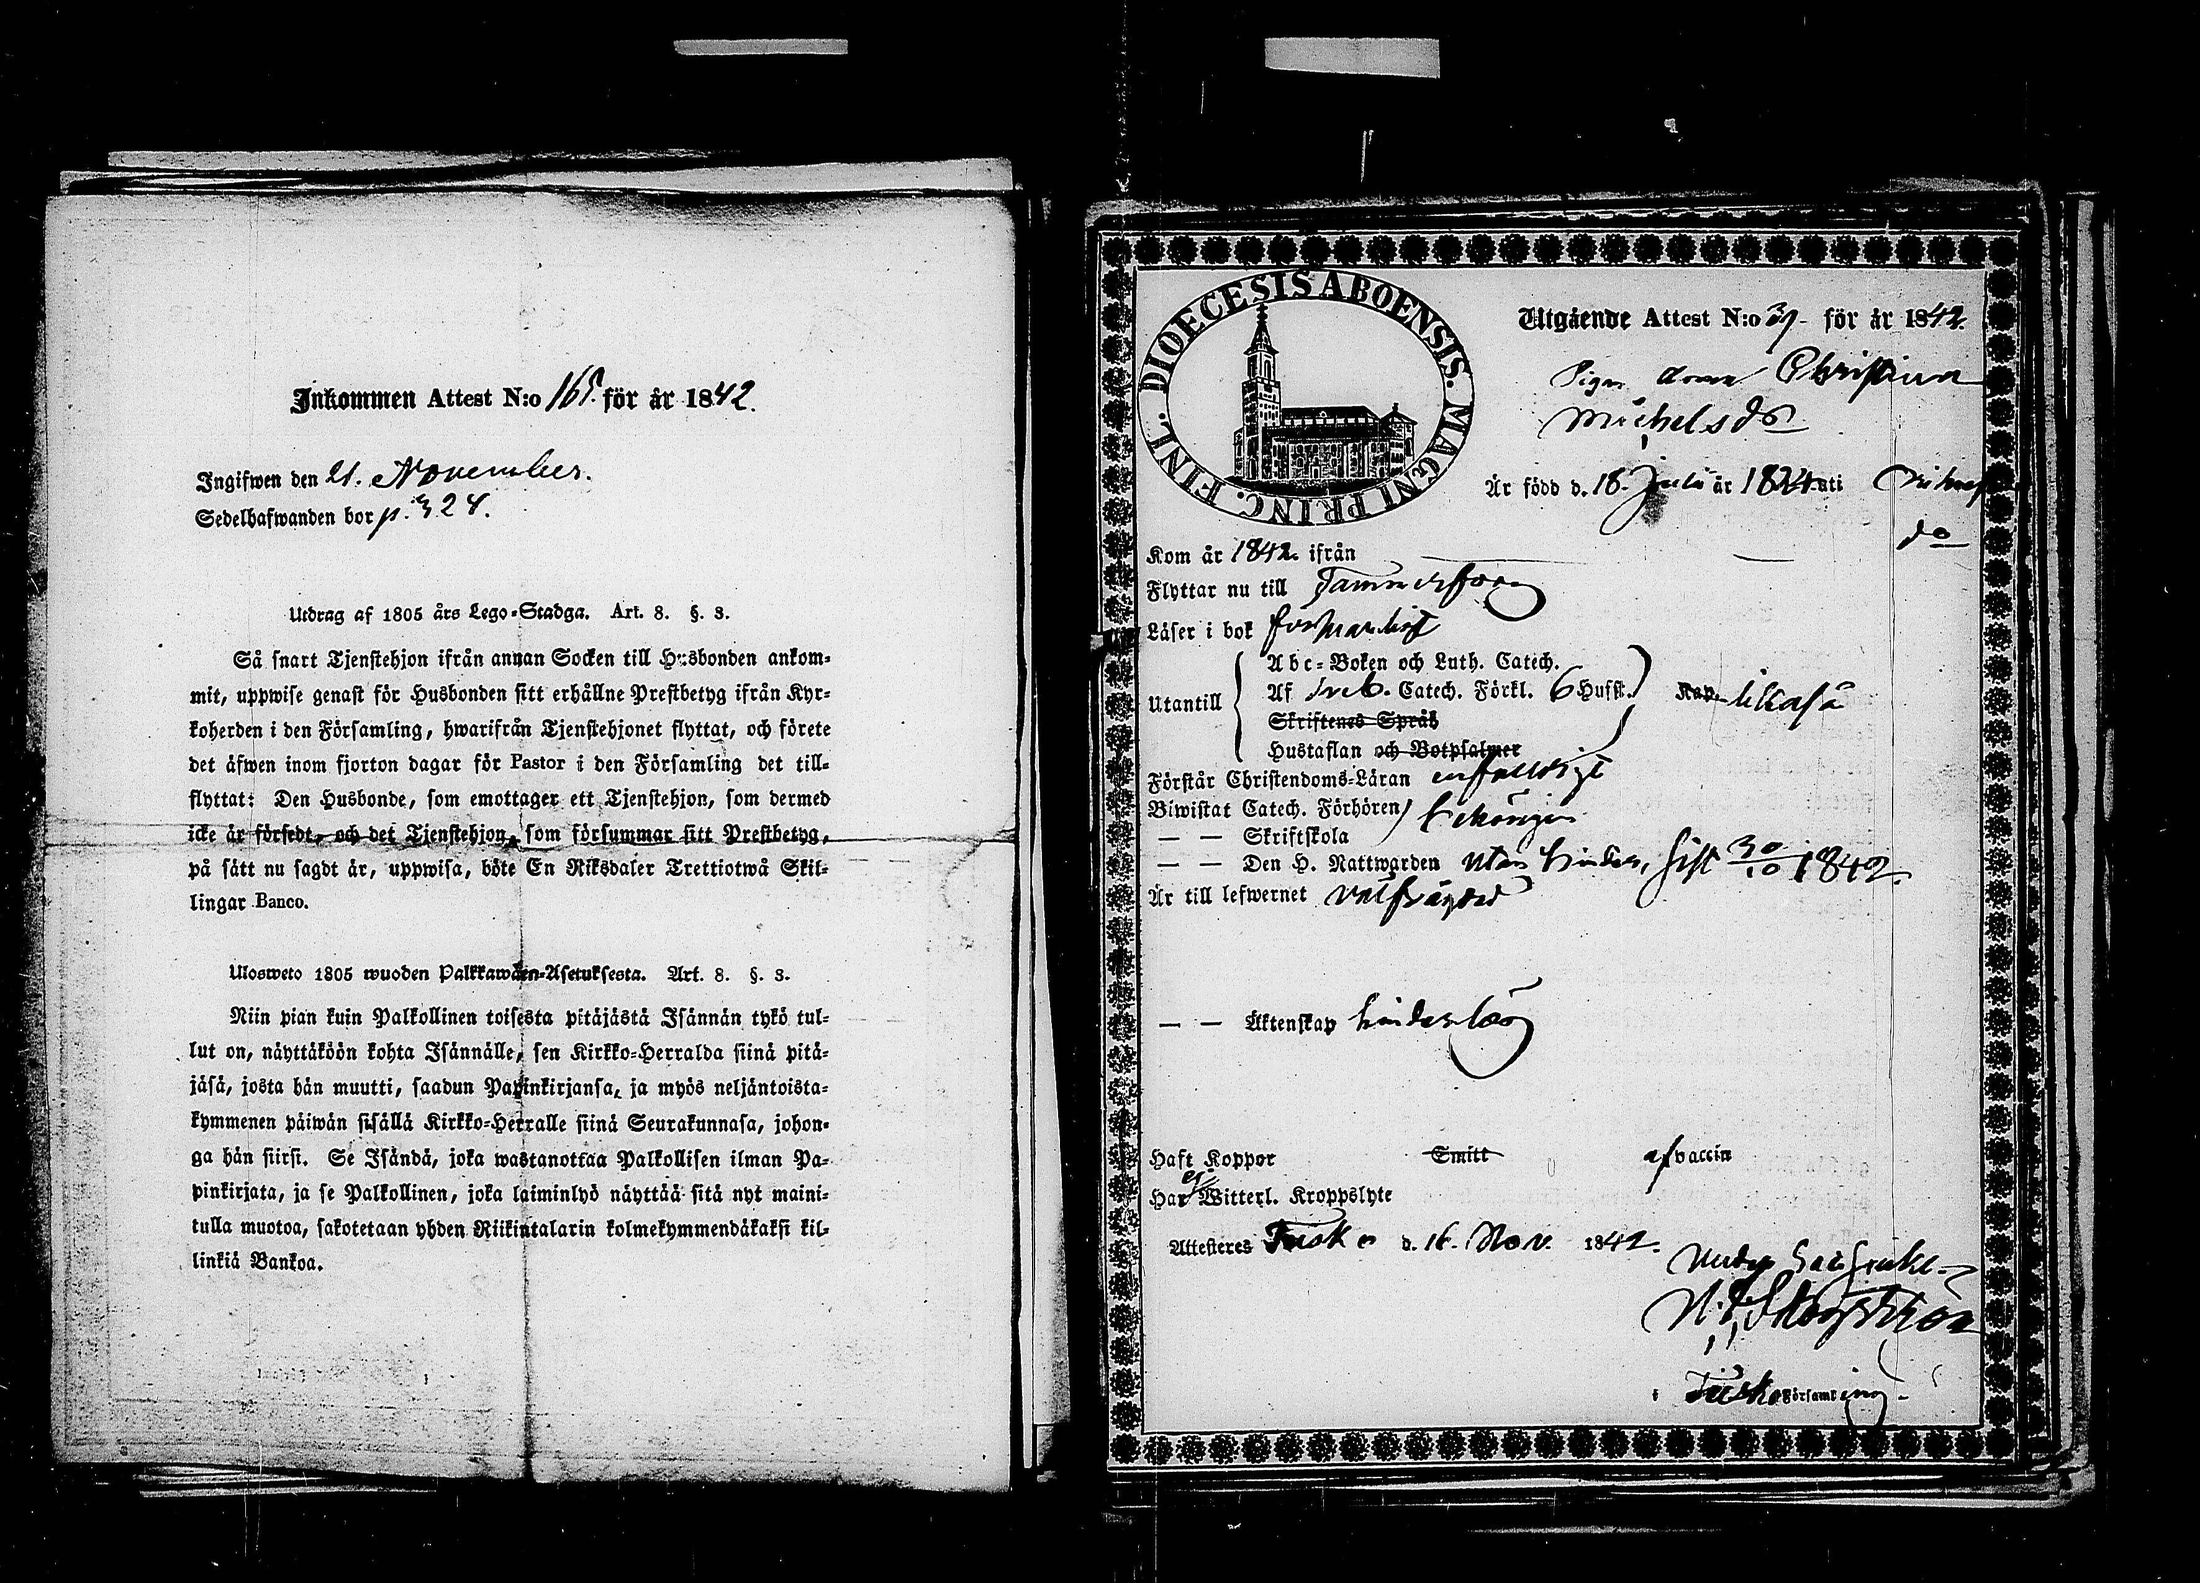 Inkommen Attest N:o 165. för år 1842.
Ingifwen den 21. November.
Sedelhafwanden bor p. 324.
Utdrag af 1805 års Lego-Stadga. Art. 8. §. 3.
Så snart Tjenstehjon ifrån annan Socken till Husbonden ankom-
mit, uppwise genast för Husbonden sitt erhållne Prestbetyg ifrån Kyr-
koherden i den Församling, hwarifrån Tjenstehjonet flyttat, och förete
det äfwen inom fjorton dagar för Pastor i den Församling det till-
flyttat: Den Husbonde, som emottager ett Tjenstehjon, som dermed
icke är försedt, och det Tjenstehjon, som försummar sitt Prestbetyg,
på sätt nu sagdt är, uppwisa, böte En Riksdaler Trettiotwå Skil-
lingar Banco.
Ulosweto 1805 wuoden Palkkawäen-Asetuksesta. Art. 8. §. 3.
Niin pian kuin Palkollinen toisesta pitäjästä Isännän tykö tul-
lut on, näyttäköön kohta Isännälle, sen Kirkko-Herralda siinä pitä-
jäsä, josta hän muutti, saadun Papinkirjansa, ja myös neljäntoista-
kymmenen päiwän sisällä Kirkko-Herralle siinä Seurakunnasa, johon-
ga hän siirsi. Se Isändä, joka wastanottaa Palkollisen ilman Pa-
pinkirjata, ja se Palkollinen, joka laiminlyö näyttää sitä nyt maini-
tulla muotoa, sakotetaan yhden Riikintalarin kolmekymmendäkaksi kil-
linkiä Bankoa.
DIOECESIS ABOENSIS. MAGNI PRINC. FINL.
Utgående Attest N:o 39 för år 1842.
Pigan Anna Christina
Michelsdr
Är född d. 18. Juli år 1824 uti
do
Kom år 1842. ifrån
Flyttar nu till Tammerfors
Läser i bok försvarligt
Utantill
Abc-Boken och Luth. Catech.
Af Sveb. Catech. Förkl. 6 Husst. Kap. likaså
Skriftenes Språk
Hustaflan och Botpsalmer
Förstår Christendoms-Läran enfaldigt
Biwistat Catech. Förhören behörigen
— — Skriftskola
— — Den H. Nattwarden utan hinder, sist 30/10 1842.
Är till lefwernet välfrägdad
— — Äktenskap hinderslös
Haft Koppor Smitt af vaccin
Har ej Witterl. Kroppslyte
Attesteres Tusko d. 16. Nov. 1842.
i Tusko Församling